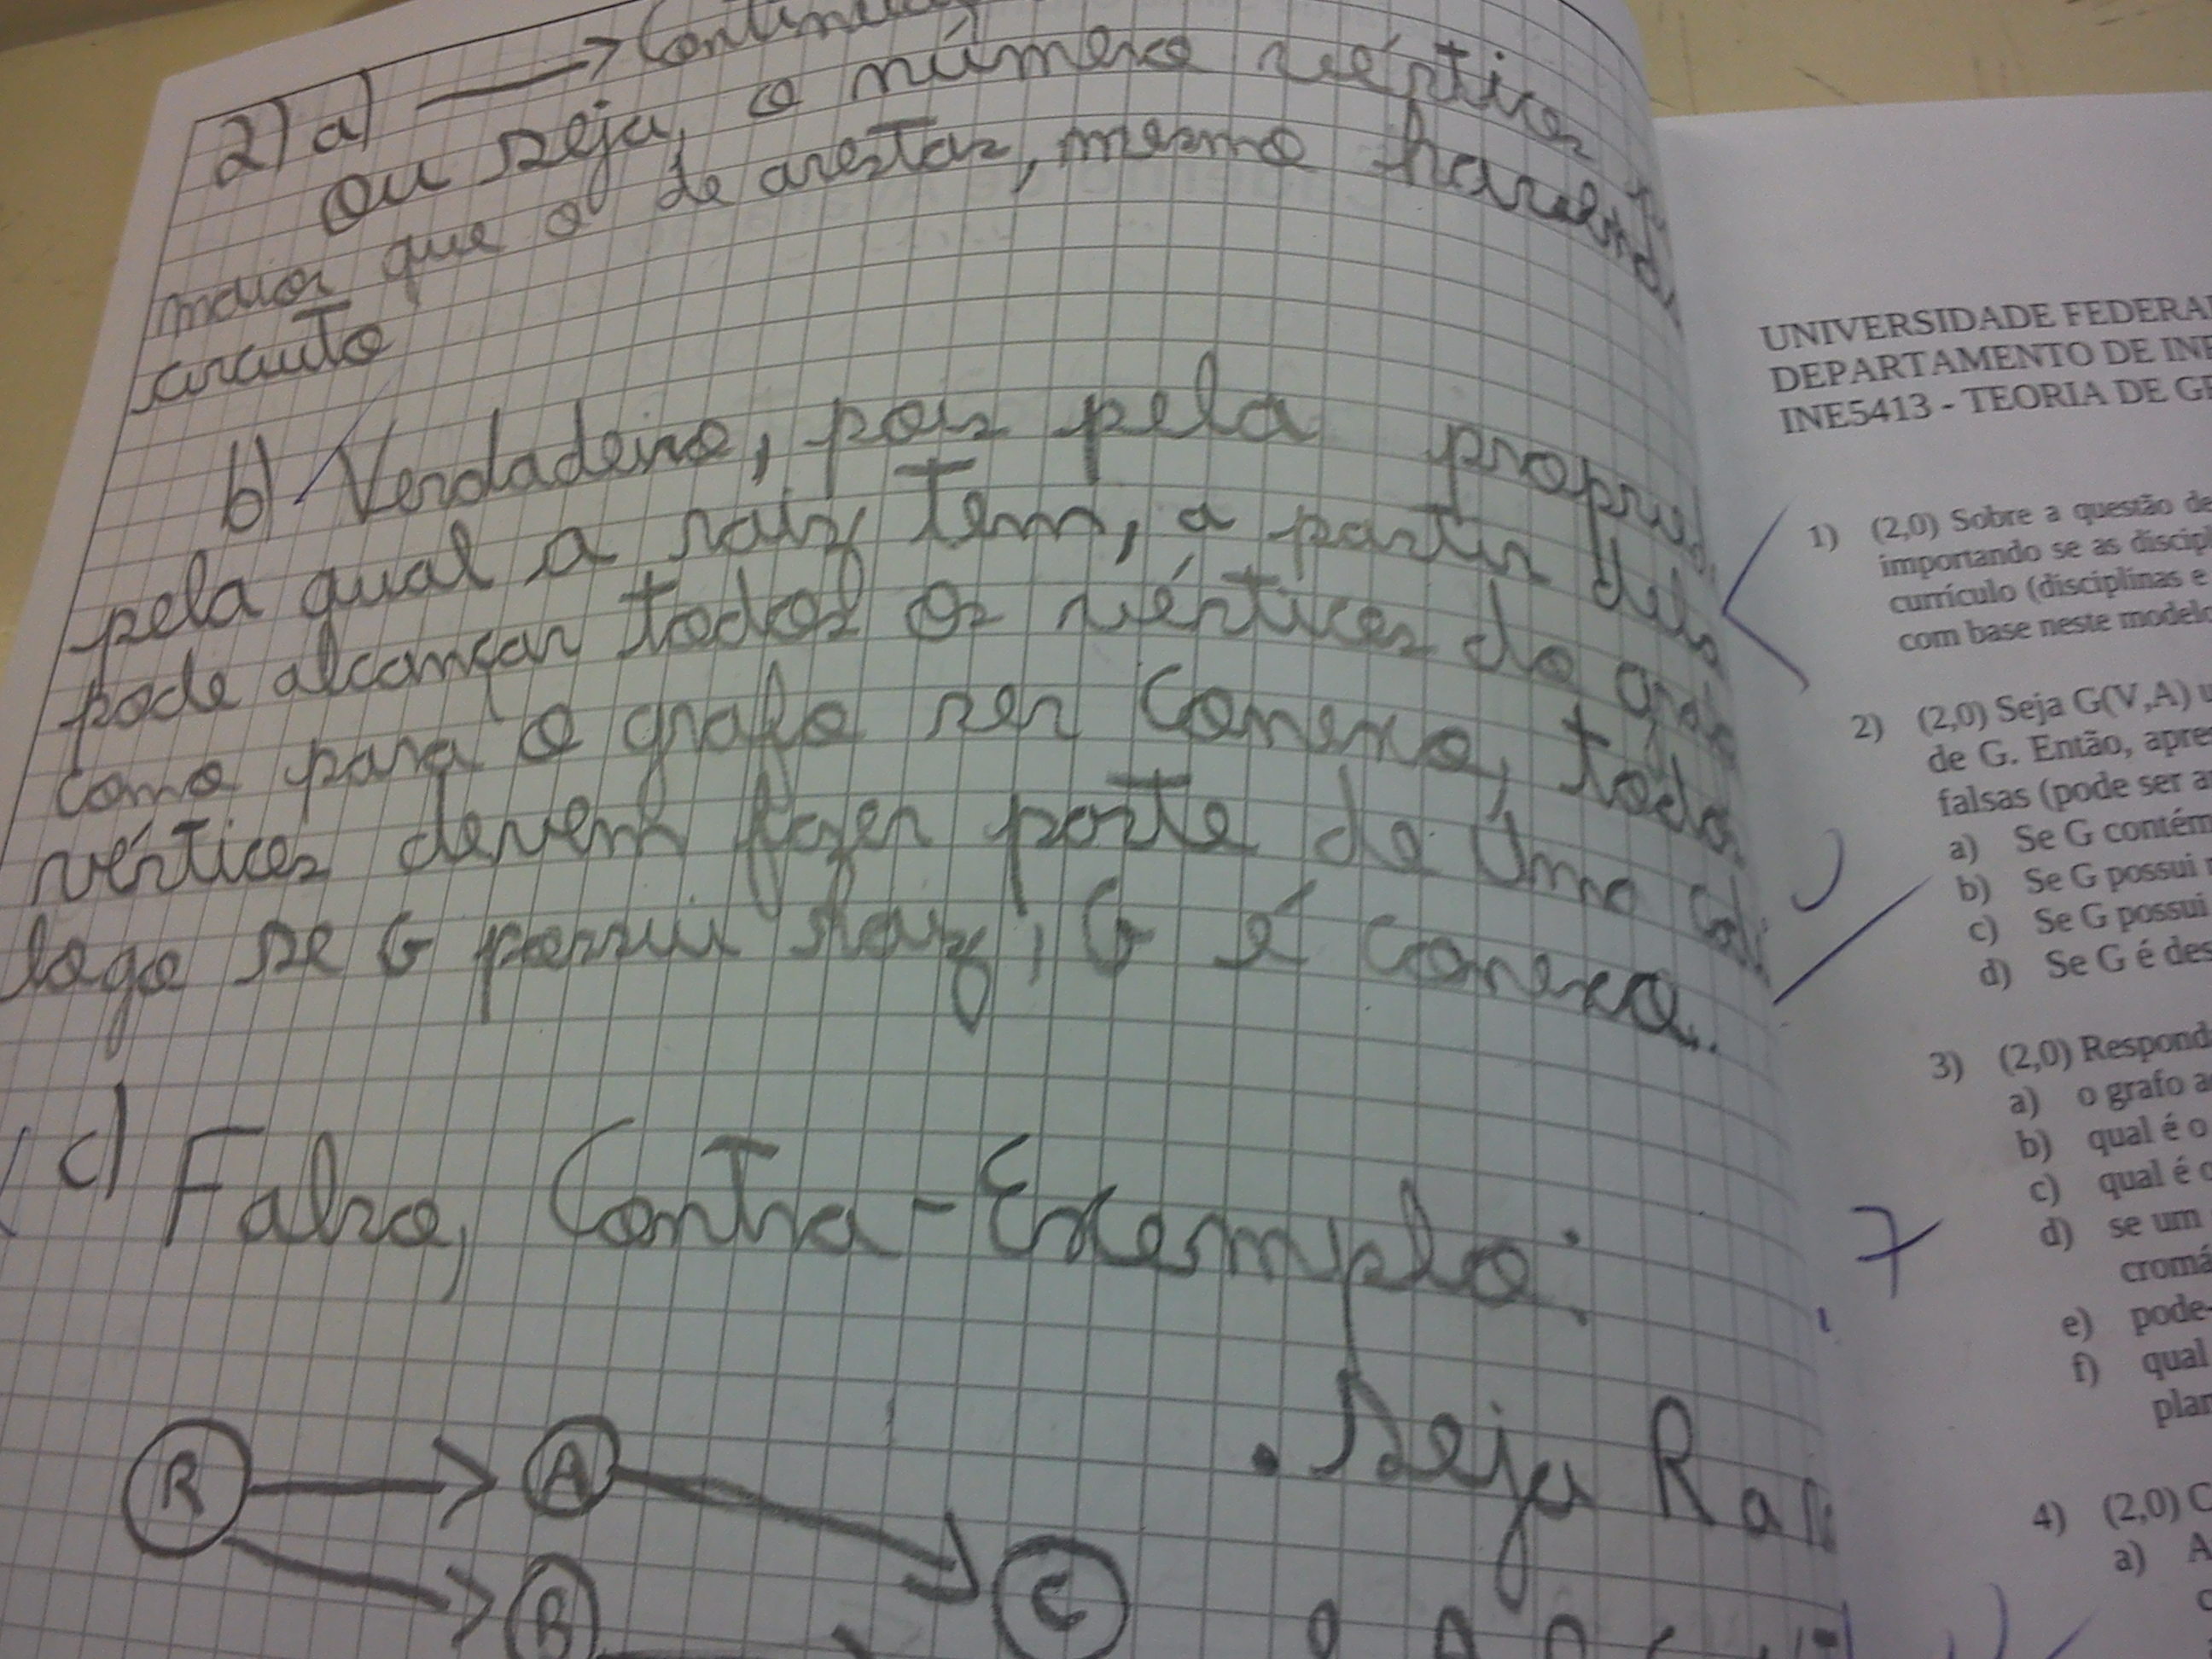 2) a) → Continua
ou seja, o número vértices
maior que o de arestas, mesmo havendo
circuito
b) Verdadeiro, pois pela
pela qual a raiz tem, a partir dela
pode alcançar todos os vértices do
como para o grafo ser conexo, todo
vértices devem fazer parte de uma
logo se G possui raiz, G é conexo.
c) Falso, Contra-Exemplo:
. Seja R
R A
B C
UNIVERSIDADE FEDERA
DEPARTAMENTO DE INF
INE5413 - TEORIA DE G
1) (2,0) Sobre a questão de
importando se as discipl
currículo (disciplinas e
com base neste modelo
2) (2,0) Seja G(V,A) u
de G. Então, apre
falsas (pode ser a
a) Se G contém
b) Se G possui
c) Se G possui
d) Se G é des
3) (2,0) Respond
a) o grafo a
b) qual é o
c) qual é o
d) se um
cromá
e) pode-
f) qual
plan
7
4) (2,0) C
a) A